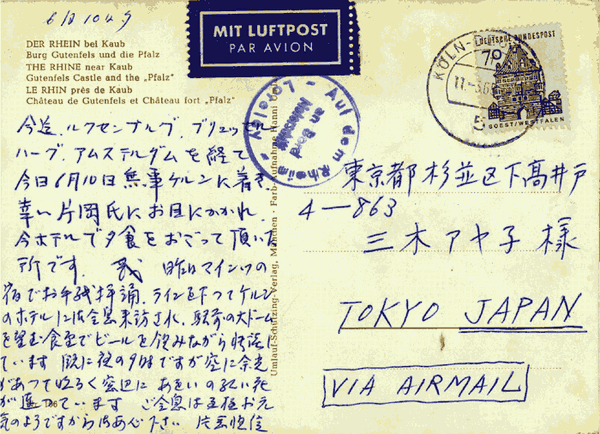 MIT LUFTPOST
PAR AVION
DER RHEIN bei Kaub
Burg Gutenfels und die Pfalz
THE RHINE near Kaub
Gutenfels Castle and the „Pfalz"
LE RHIN près de Kaub
Château de Gutenfels et Château fort „Pfalz"
DEUTSCHE BUNDESPOST
70
SOEST/WESTFALEN
KÖLN
Auf dem Rhein
an Bord
今迄、ルクセンブルグ、ブリュッセル
ハーグ、アムステルダムを経て
今日6月10日無事ケルンに着き
幸い片岡氏にお目にかかれ、
今ホテルで夕食をおごって頂いた
所です。
昨日マインツの
宿でお手紙拝誦、ラインを下ってケルン
のホテルには令息来訪され、駅前の大ドーム
を望む食堂でビールを飲みながら
ています 既に夜の9時ですが空に余光
があって 窓辺に あおいの紅い花
が ています ご令息は至極お元
気のようですから御安心下さい
東京都杉並区下高井戸
4-863
三木アヤ子様
TOKYO JAPAN
VIA AIRMAIL
Umlauf-Schulzing-Verlag, München · Farb-Aufnahme Hanni